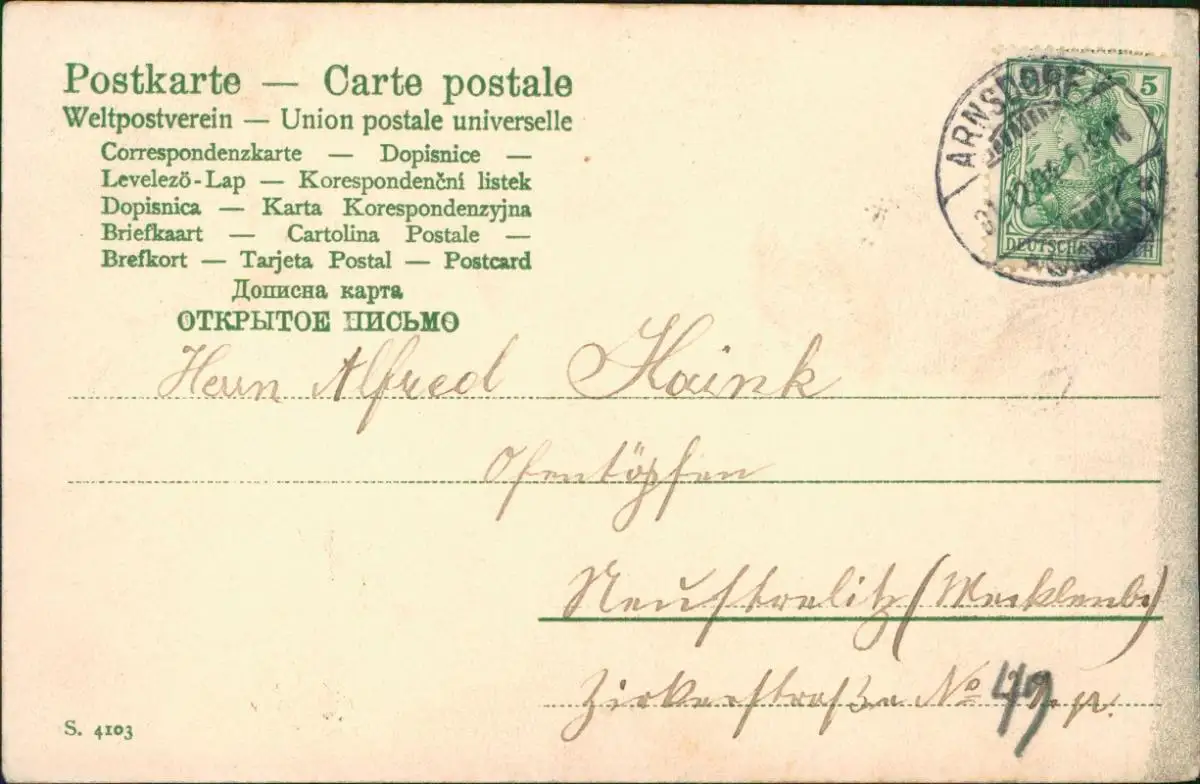 Postkarte — Carte postale
Weltpostverein — Union postale universelle
Correspondenzkarte — Dopisnice —
Levelező-Lap — Korespondenční listek
Dopisnica — Karta Korespondenzyjna
Briefkaart — Cartolina Postale —
Brefkort — Tarjeta Postal — Postcard
Дописна карта
ОТКРЫТОЕ ПИСЬМО
5
ARNSDORF
DEUTSCHES REICH
Herrn Alfred Haink
Ofentöpfer
Neustrelitz (Mecklenb.)
Zirkerstraße No 49
S. 4103